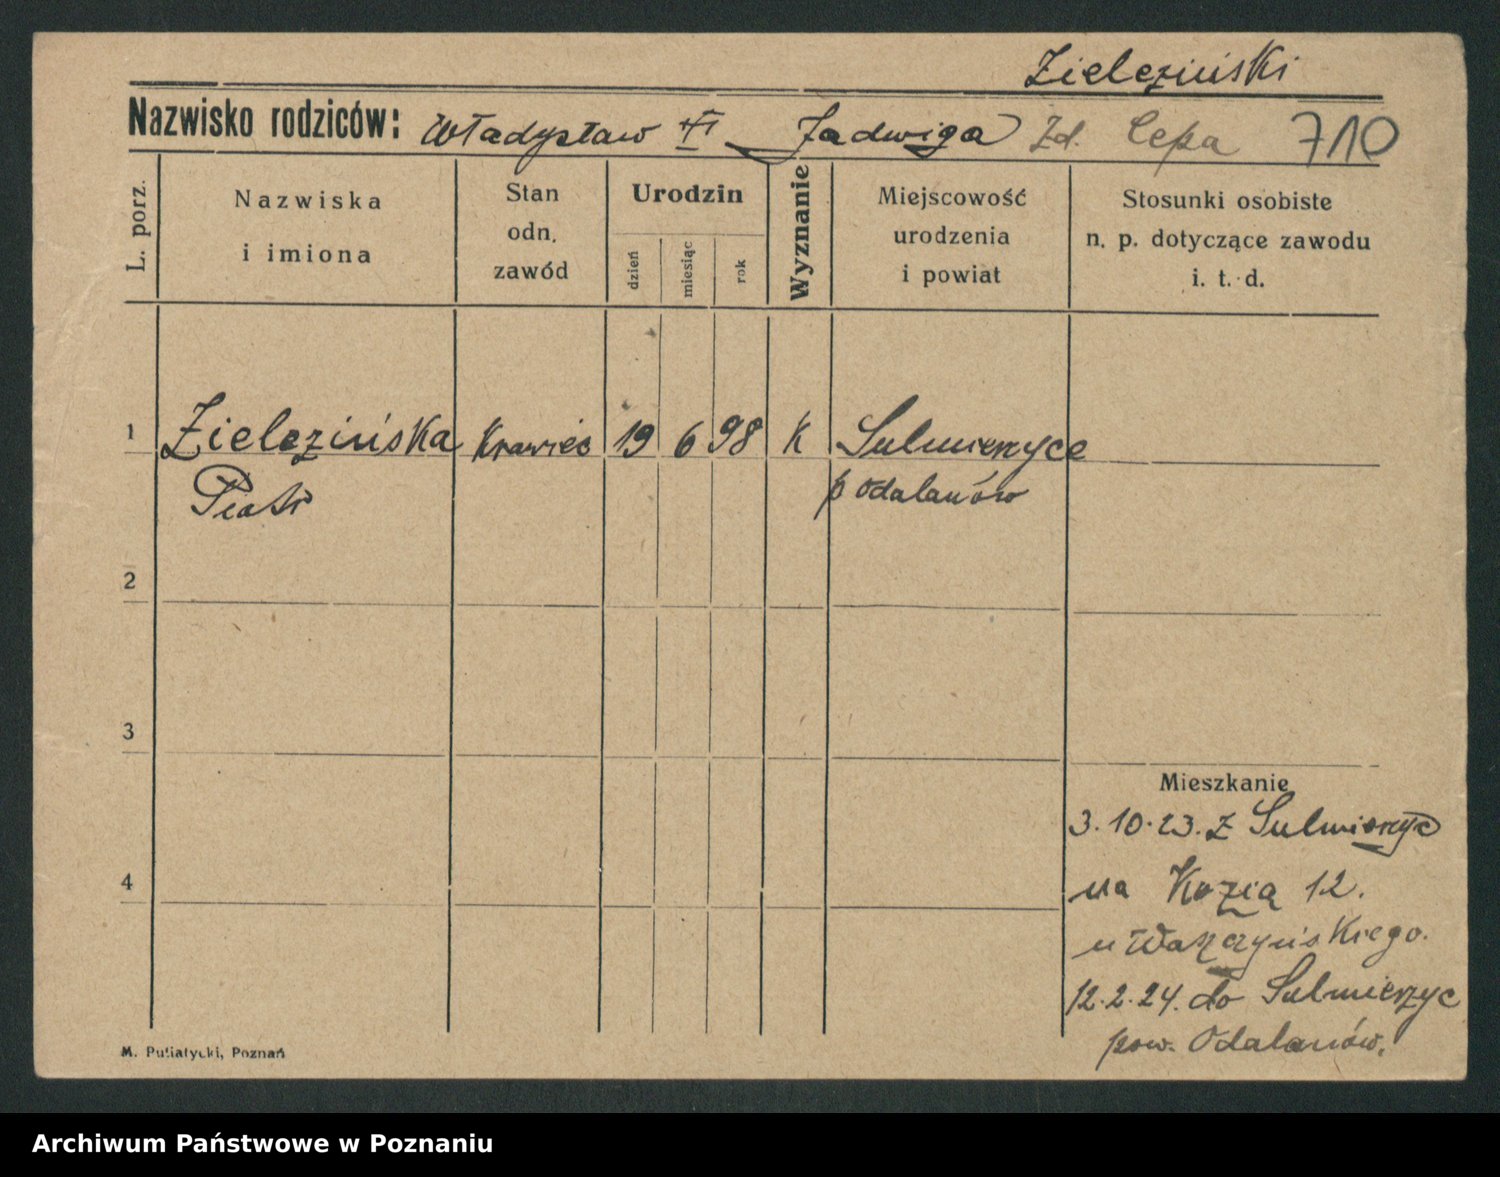 Zieleziński
Nazwisko rodziców: Władysław Jadwiga Zd. Cepa 710
L. porz.
Nazwiska i imiona
Stan odn. zawód
Urodzin
dzień miesiąc rok
Wyznanie
Miejscowość urodzenia i powiat
Stosunki osobiste n. p. dotyczące zawodu i. t. d.
1 Zielezińska Krawiec 19 6 98 K Sulmierzyce
Piotr p Odalanów
2
3
Mieszkanie
3.10.23. z Sulmierzyc
4 na Kozią 12.
u Waszczyńskiego.
12.2.24. do Sulmierzyc
pow. Odalanów.
M. Putiatycki, Poznań
Archiwum Państwowe w Poznaniu